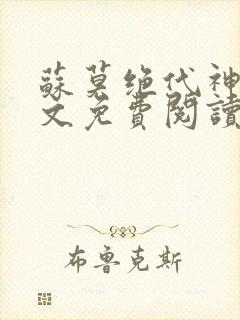 蘇莫绝代神
文免費閱讀
布鲁克斯